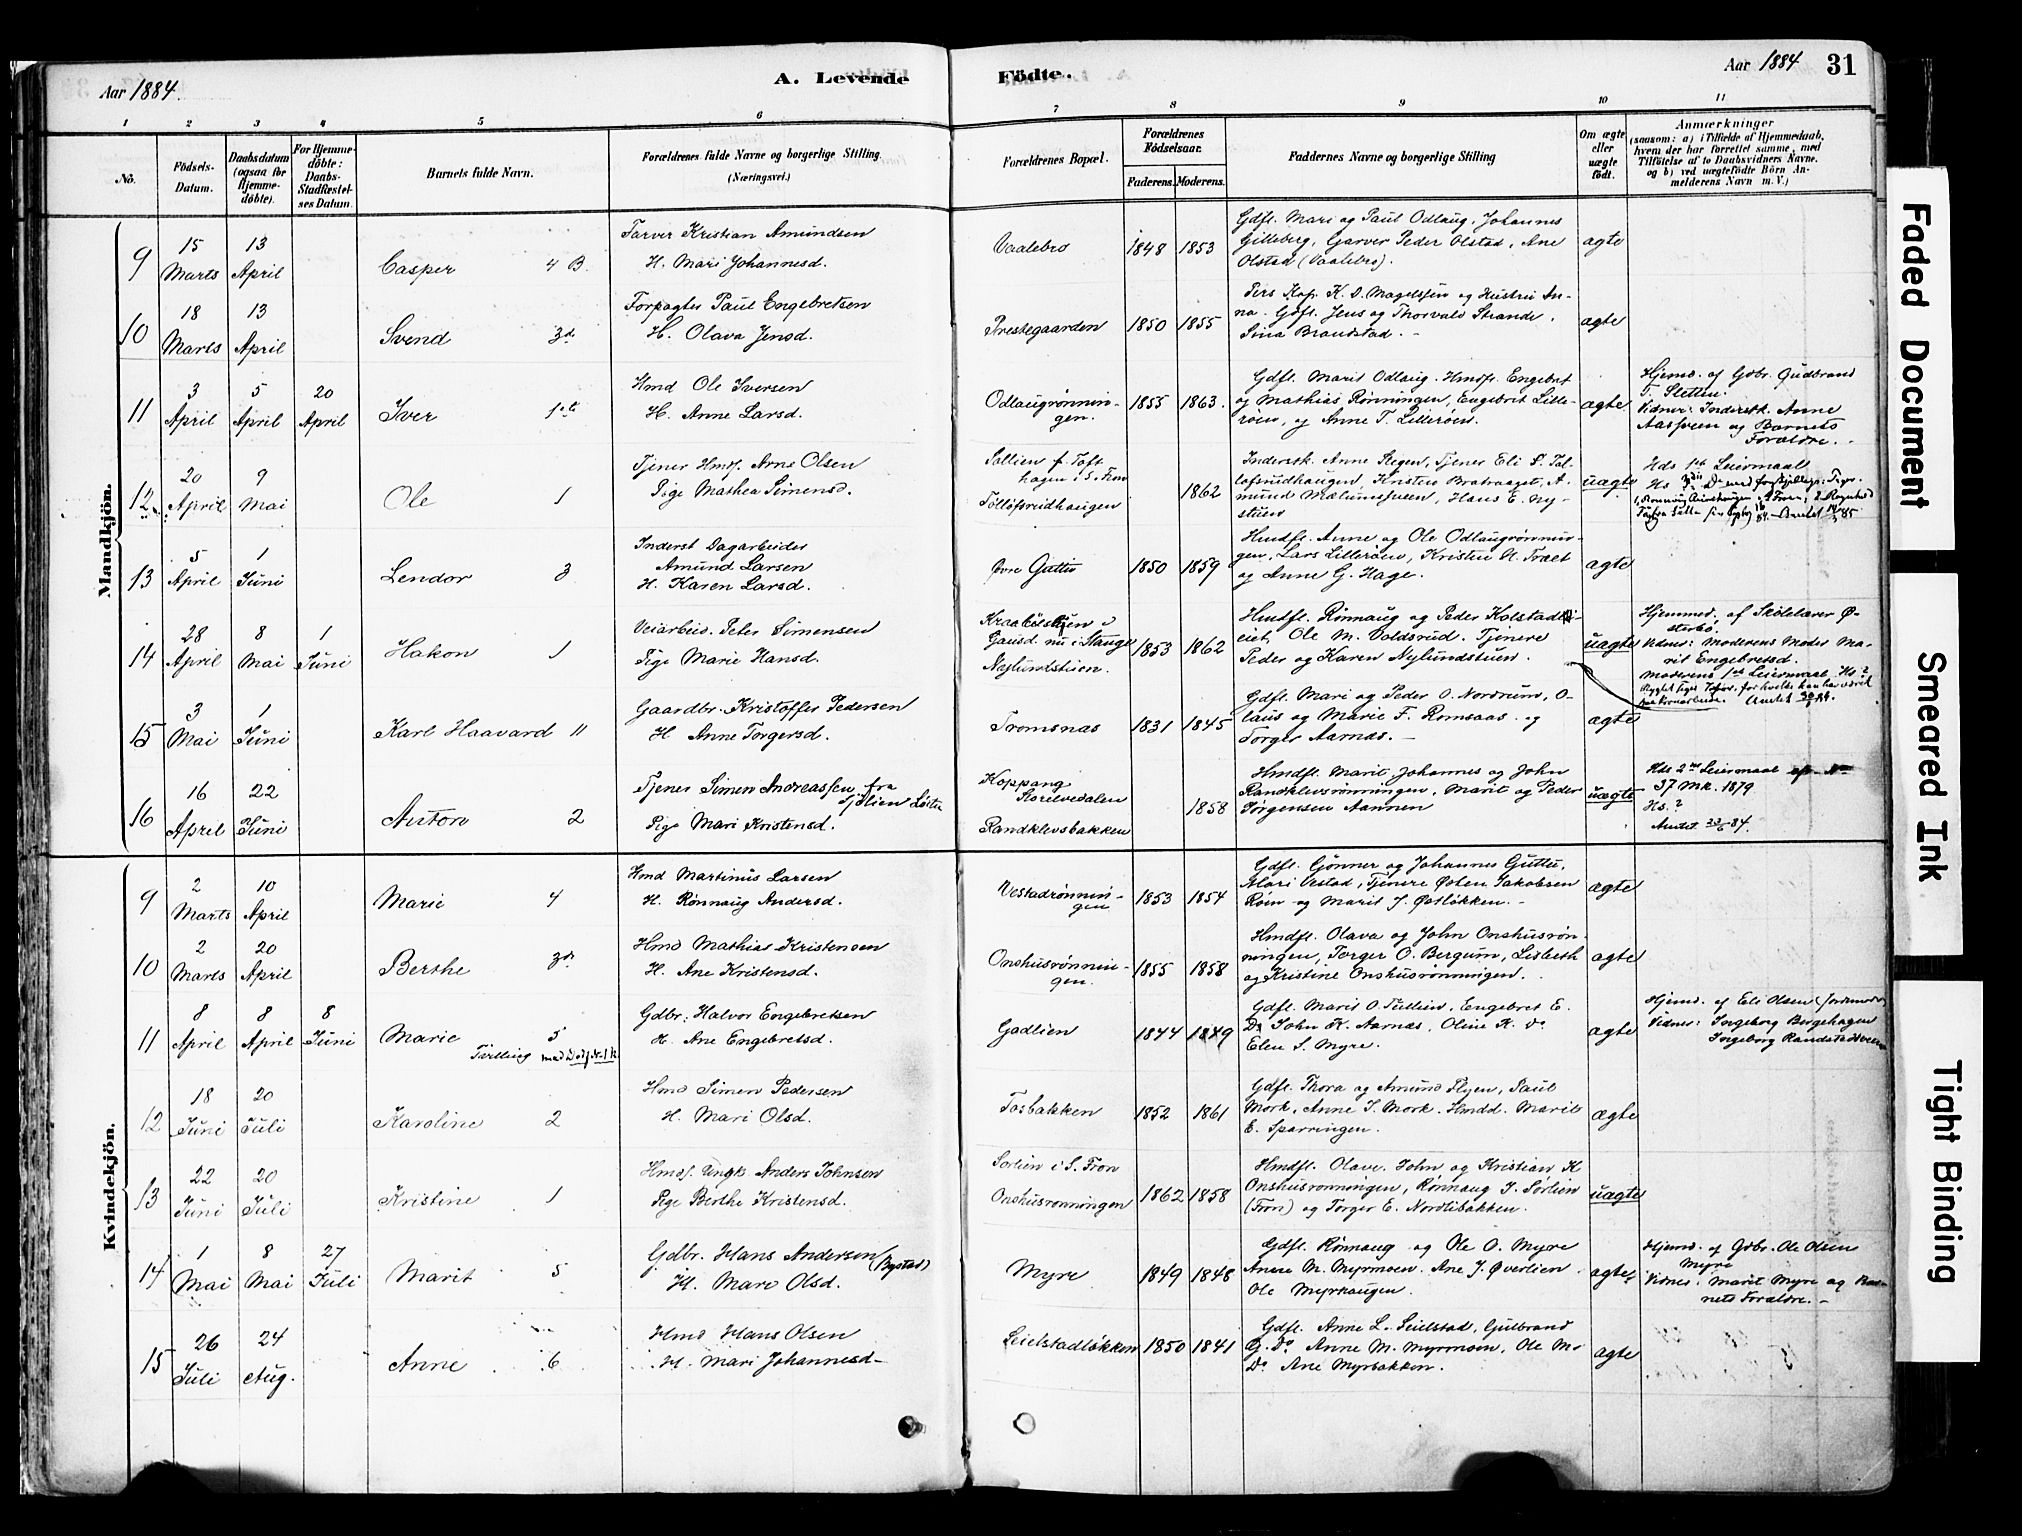 Aar 1884.
A. Levende
Födte.
Aar 1884
31
1 2 3 4 5 6 7 8 9 10 11
No.
Födsels-Datum.
Daabsdatum (ogsaa for Hjemmedöbte).
For Hjemmedöbte: Daabs-Stadfæstelses Datum.
Barnets fulde Navn.
Forældrenes fulde Navne og borgerlige Stilling. (Næringsvei.)
Forældrenes Bopæl.
Forældrenes Födselsaar.
Faderens.
Moderens.
Faddernes Navne og borgerlige Stilling
Om ægte eller uægte födt.
Anmærkninger
(saasom: a) i Tilfælde af Hjemmedaab, hvem der har forrettet samme, med Tilföielse af to Daabsvidners Navne, og b) ved uægtefödte Börn Anmelderens Navn m. V.)
Mandkjön.
9 15 Marts 13 April Casper 4 B.
Garver Kristian Amundsen
H. Mari Johannesd.
Vaalebro 1848 1853
Gdfl. Mari og Paul Odlaug, Johannes
Gilleberg, Garver Peder Olstad, Ane
Olstad (Vaalebro).
ægte
10 18 Marts 13 April Svend 3d.
Forpagter Paul Engebretsen
H. Olava Jensd.
Prestegaarden 1850 1855
Pers. Kap. K. D. Magelssen og Hustru An-
na. Gdfl. Jens og Thorvald Strande.
Sina Brandstad.
ægte
11 3 April 5 April 20 April Iver
Hmd Ole Iversen
H. Anne Larsd.
Odlaugrønnin-
gen. 1855 1863.
Gdfl. Marit Odlaug. Hmdfl. Engebret
og Mathias Rønningen, Engebrit Lille-
røen, og Anne T. Lillerøen.
ægte
Hjemd. af Gdbr. Gudbrand
T. Sletten.
Vidner: Inderstk. Anne
Aasveen og Barnets
Forældre.
12 20 April 9 Mai Ole 1
Tjener Arne Olsen
Pige Mathea Simensd.
Sollien p. Toft
hagen i S. Fron
Tollofsrudhaugen 1862
Inderstk. Anne Stegen, Tjener Eli S. Tol-
lofsrudhaugen, Kristen Bratvaaget, A-
mund Mælumsstuen, Hans E. Ny-
stuen
uægte
Hds 1ste Leiermaal
13 5 April 1 Juni Lendor 3
Inderst Dagarbeider
Amund Larsen
H. Karen Larsd.
Øvre Guttu 1850 1859
Hmdfl. Anne og Ole Odlaugrønnin-
gen, Lars Lillerøen, Kristen A. Træet
og Anne G. Hage.
ægte
14 28 April 8 Mai 1 Juni Hakon 1
Veiarbeid. Peter Simensen
Pige Marie Hansd.
Kraabølstuen i
Gausd. nu i Stange
Nylundstuen. 1853 1862
Hmdfl. Rønnaug og Peder Kolstad-
eiet, Ole M. Voldsrud. Tjenere
Peder og Karen Nylundstuen.
uægte
Hjemmed. af Skolelærer Ø-
sterbø.
Vidnes: Moderens Moder Ma-
rit Engebretsd.
Moderens 1ste Leiermaal. Hs.?
15 3 Mai 1 Juni Karl Haavard 11
Gaardbr. Kristoffer Pedersen
H. Anne Torgersd.
Tromsnæs 1831 1845
Gdfl. Mari og Peder O. Nordrum, O-
laus og Marie F. Romsaas. og
Torger Aarnæs.
ægte
16 16 April 22 Juni Anton 2
Tjener Simen Andreassen fra
Pige Mari Kristensd.
Koppang
Storelvedalen
Randklevsbakken 1858
Hmdfl. Marit Johannes og John
Randklevsrønningen, Marit og Peder
Jørgensen Aannen
uægte
Hds 2det Leiermaal
37 Mk. 1879
Hs.?
Kvindekjön.
9 2 Marts 10 April Marie 4
Hmd Martinus Larsen
H. Rønnaug Andersd.
Vestadrønnin-
gen 1853 1854
Gdfl. Gjønner og Johannes Guttu,
Mari Vestad, Tjenere Østen Jakobsen
Røin og Marit J. Østløkken.
ægte
10 2 Marts 20 April Berthe 3d.
Hmd Mathias Kristensen
H. Ane Kristensd.
Onshusrønnin-
gen. 1855 1858
Hmdfl. Olava og John Onshusrøn-
ningen, Torger O. Bergum, Lisbeth
og Kristine Onshusrønningen.
ægte
11 8 April 8 April 8 Juni Marie 5
Tvilling
Gdbr. Halvor Engebretsen
H. Ane Engebretsd.
Gadlien 1844 1849
Gdfl. Marit O. Tullien, Engebret E.
Do John K. Aarnæs, Oline K. do
Elen S. Myre.
ægte
Hjemd. af Eli Olsen (Jordmoder)
Vidnes: Ingeborg Bergehagen
Ingeborg Randstadsveen
12 18 Juni 20 Juli Karoline 2
Hmd Simen Pedersen
H. Mari Olsd.
Tosbakken 1852 1861
Gdfl. Thora og Amund Flyen, Paul
Mork, Anne S. Mork. Hmdd. Marit
E. Sparringen.
ægte
13 22 Juni 20 Juli Kristine 1
Hmds. Ungk. Anders Johnsen
Pige Berthe Kristensd.
Sørlien i S. Fron
Onshusrønningen 1862 1858
Hmdfl. Olave. John og Kristian K
Onshusrønningen, Rønnaug J. Sørlien
(Fron) og Torger E. Nordlibakken.
uægte
14 1 Mai 8 Mai 27 Juli Marit 5
Gdbr. Hans Andersen (Bystad)
H. Mare Olsd.
Myre 1849 1848
Gdfl. Rønnaug og Ole O. Myre
Anne M. Myrmoen. Ane J. Øverlien.
Ole Myrhaugen.
ægte
Hjemd. af Gdbr. Ole Olsen
Myre
Vidnes: Marit Myre og Bar-
nets Forældre.
15 26 Juli 24 Aug. Anne 6
Hmd Hans Olsen
H. Mari Johannesd
Seielstadløkken 1850 1841
Gdfl. Anne L. Seielstad, Gulbrand
G. Do. Anne M. Myrmoen, Ole M.
Do Ane Myrbakken.
ægte
Faded Document
Smeared Ink
Tight Binding